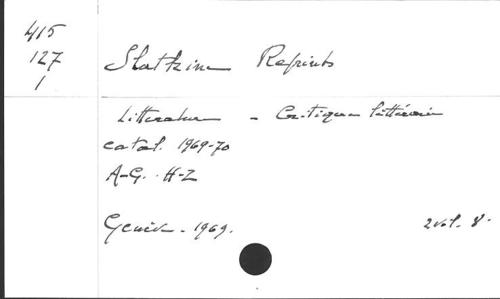 415
127
1
Slatkine Reprints
Litterature - Critique littéraire
catal. 1969-70
A-G. H-Z
Genève - 1969.
2 vol. 8°